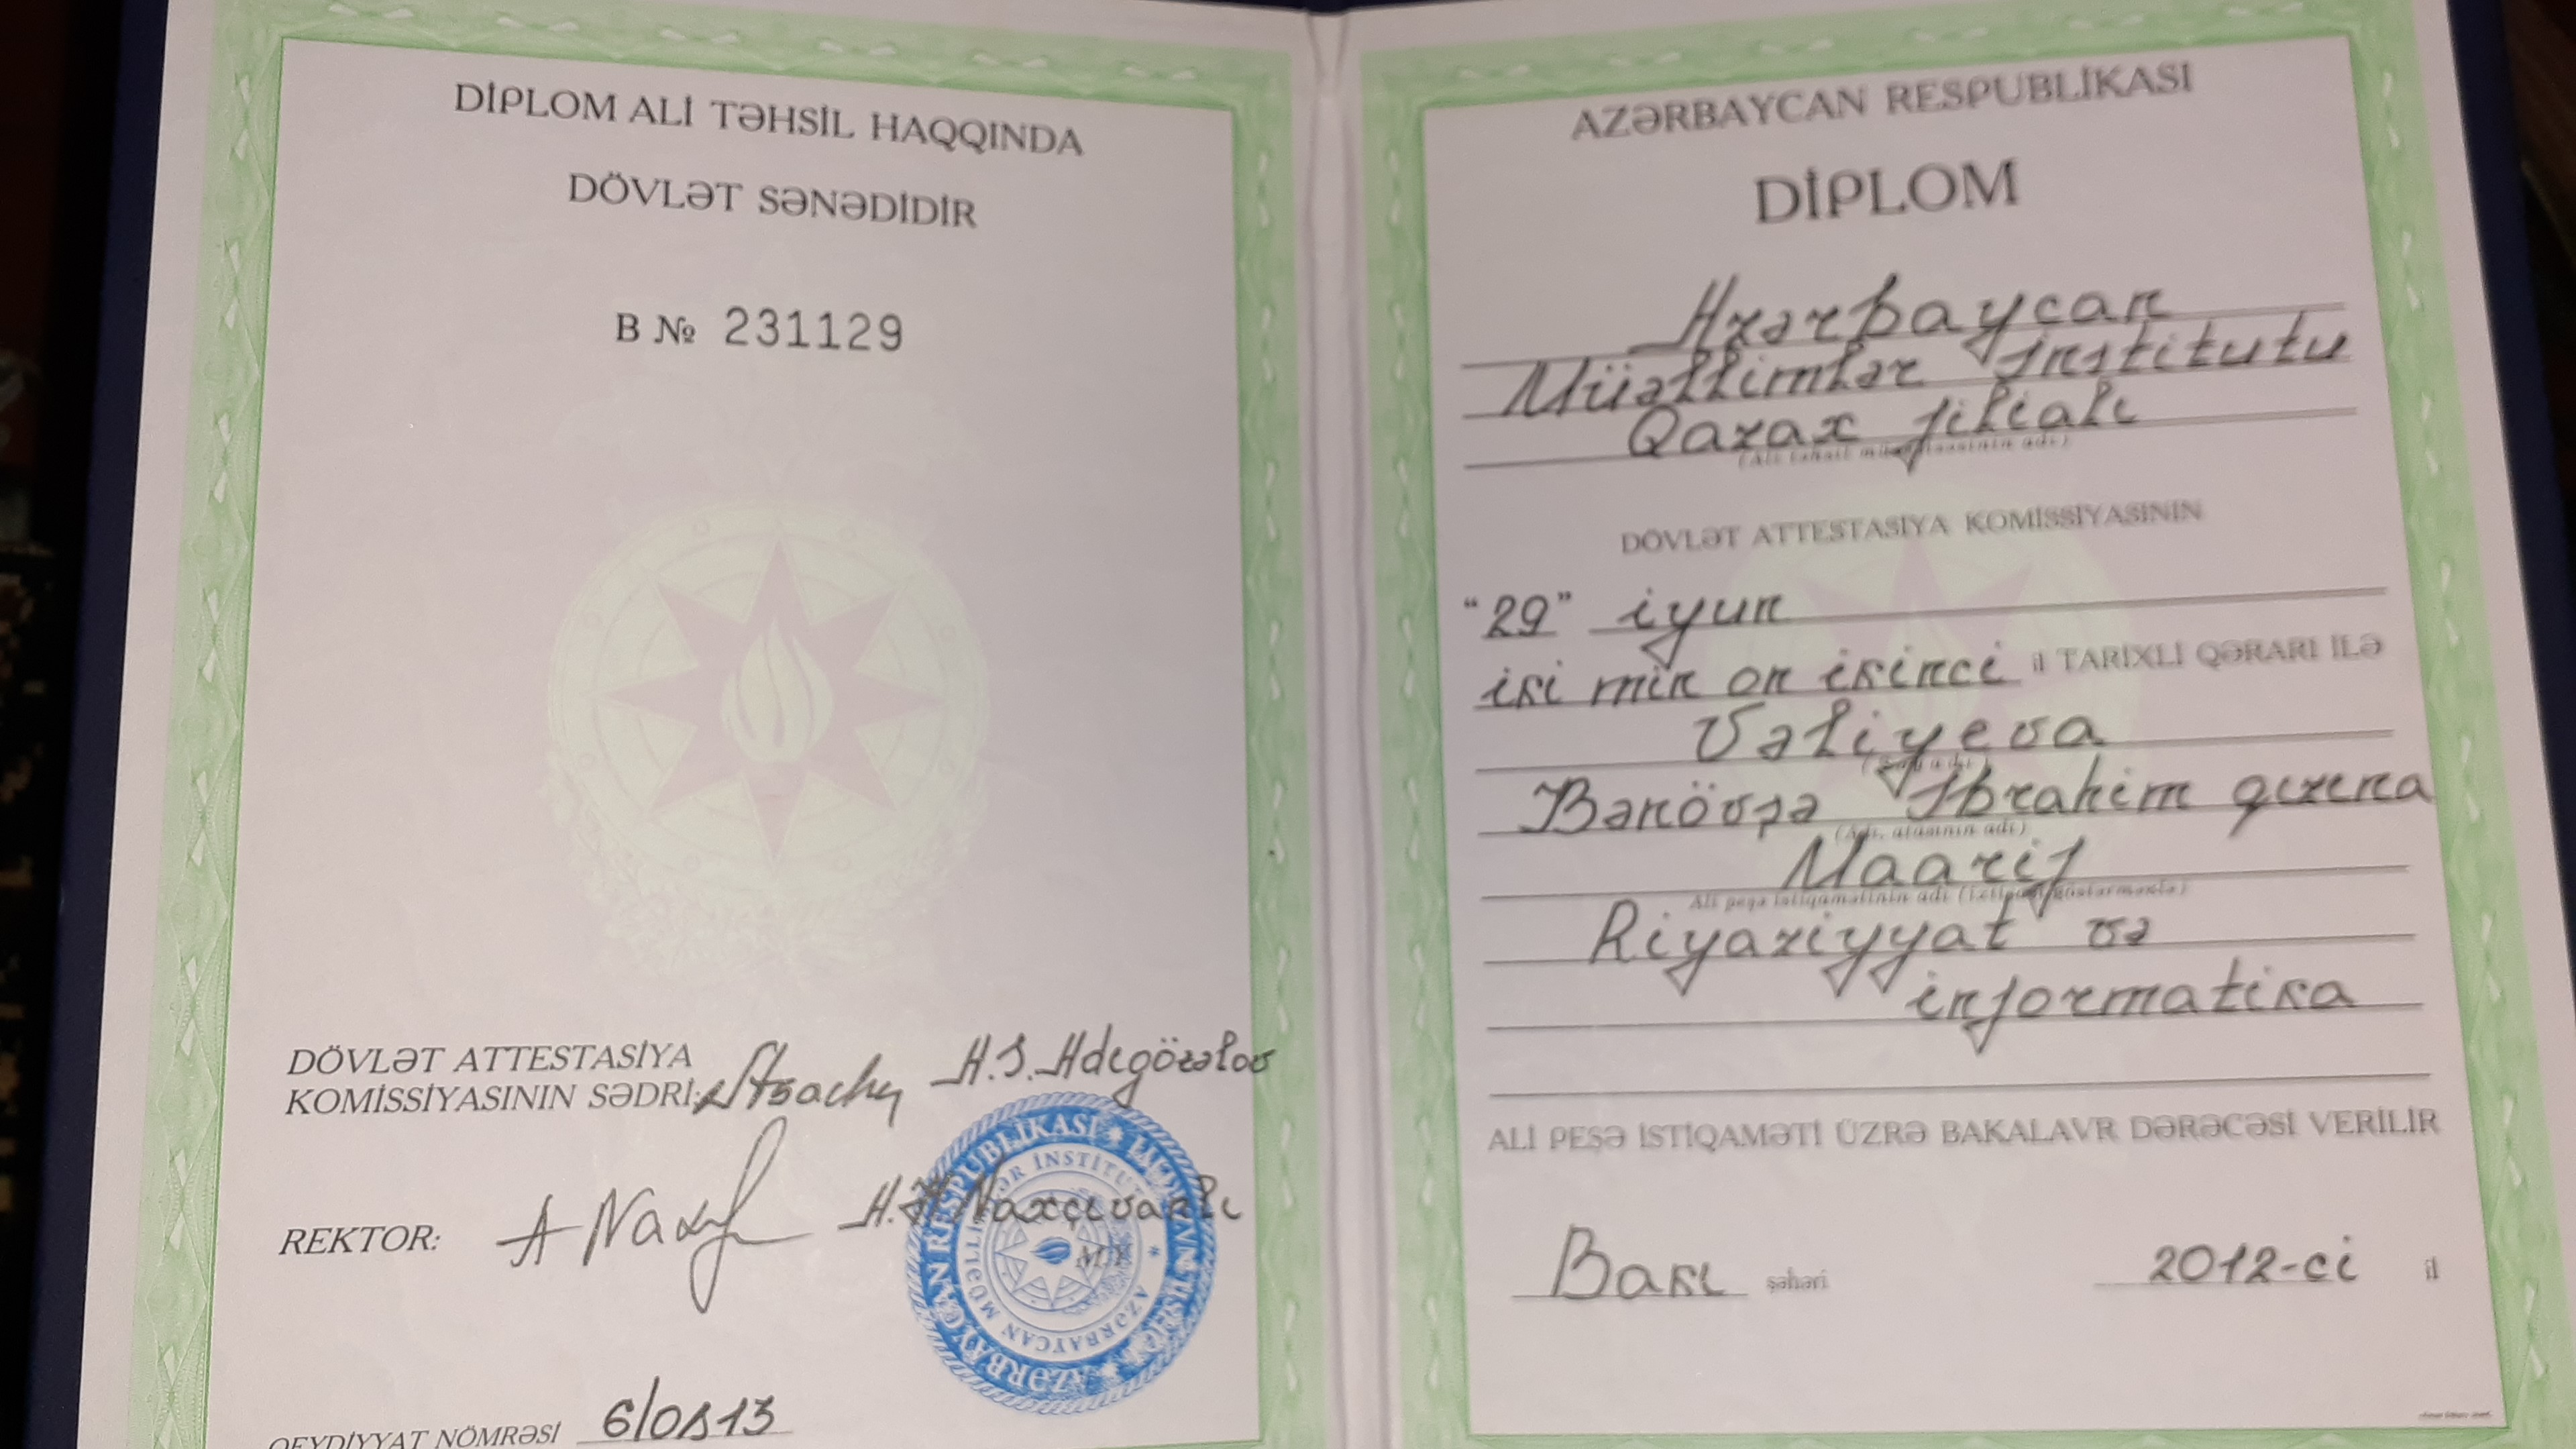 DİPLOM ALİ TƏHSİL HAQQINDA
DÖVLƏT SƏNƏDİDİR
B № 231129
DÖVLƏT ATTESTASİYA
KOMİSSİYASININ SƏDRİ: H.S. Adıgözəlov
REKTOR: A Nax A.A Naxçıvanlı
AZƏRBAYCAN RESPUBLİKASI
AZƏRBAYCAN MÜƏLLİMLƏR İNSTİTUTU
QEYDİYYAT NÖMRƏSİ
AZƏRBAYCAN RESPUBLİKASI
DİPLOM
Azərbaycan
Müəllimlər İnstitutu
Qazax filialı
(Ali təhsil müəssisəsinin adı)
DÖVLƏT ATTESTASİYA KOMİSSİYASININ
"29" iyun
iki min on ikinci il TARİXLİ QƏRARI İLƏ
Vəliyeva
(Soyadı)
Bənövşə İbrahim qızına
(Adı, atasının adı)
Maarif
Ali peşə istiqamətinin adı (ixtisası göstərməklə)
Riyaziyyat və
informatika
ALİ PEŞƏ İSTİQAMƏTİ ÜZRƏ BAKALAVR DƏRƏCƏSİ VERİLİR
Bakı şəhəri 2012-ci il